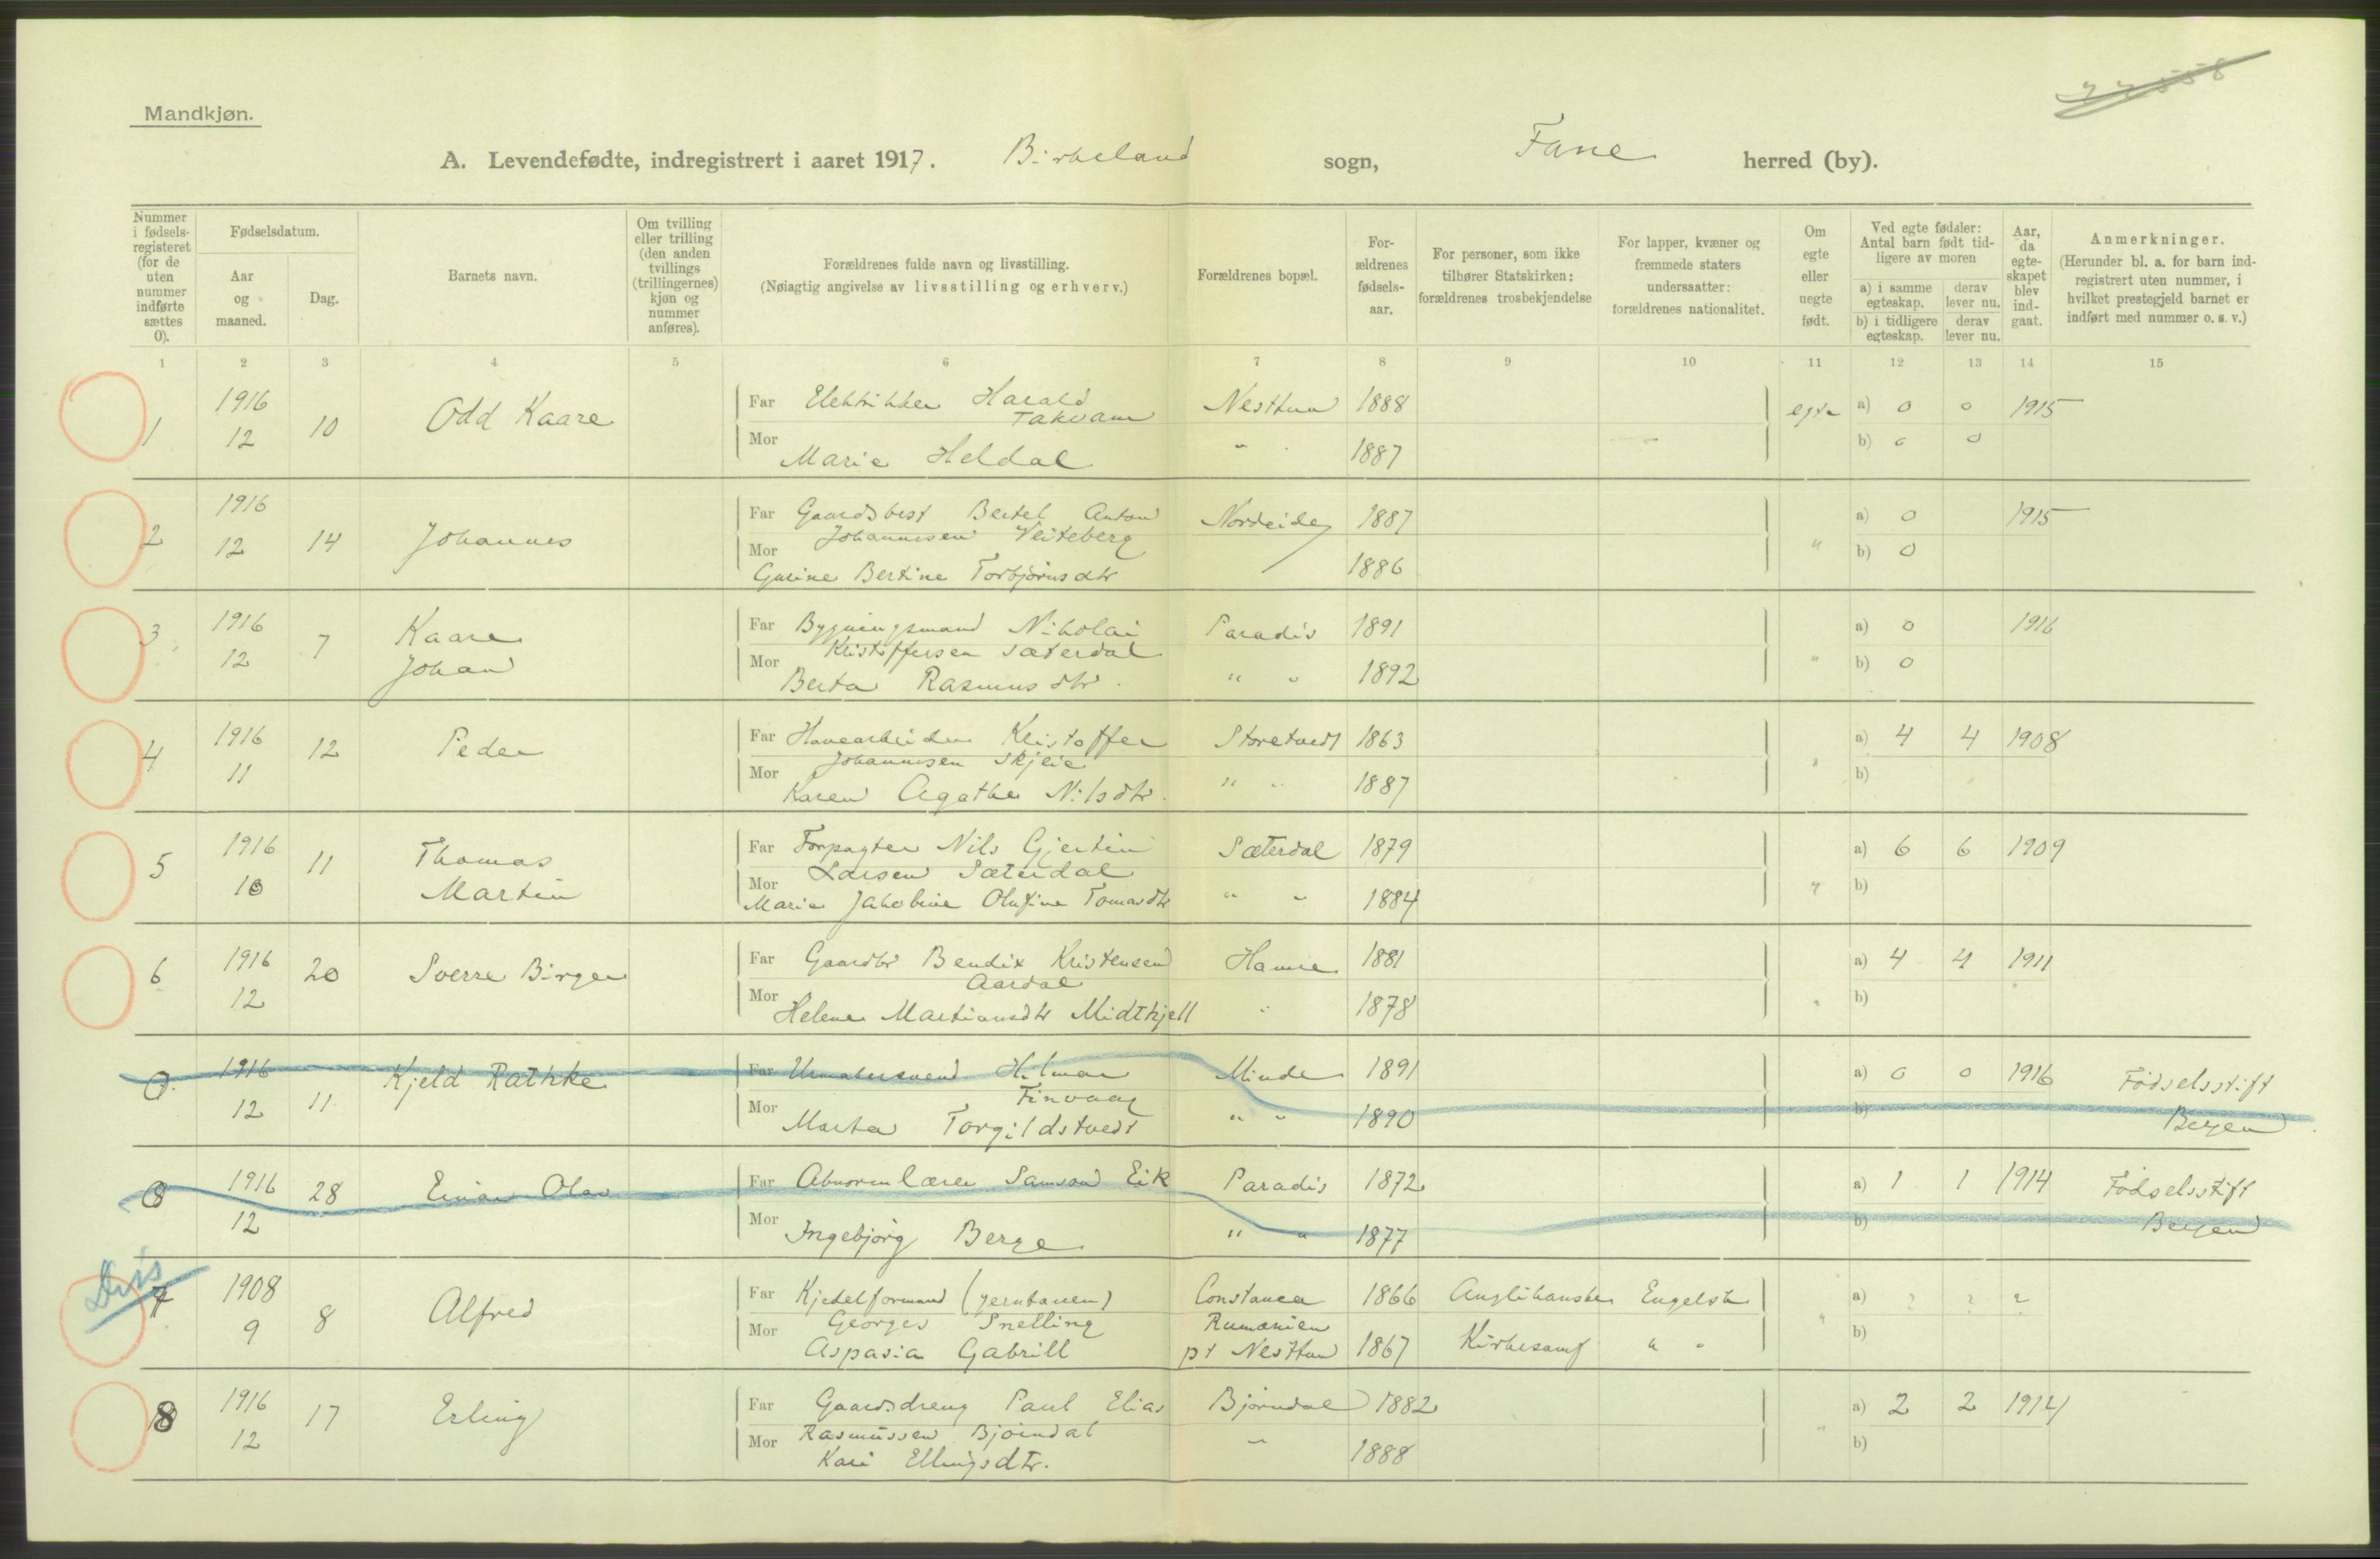 Mandkjøn.
A. Levendefødte, indregistrert i aaret 1917. Birkeland sogn, Fane herred (by).
Nummer i fødselsregisteret (for de uten nummer indførte sættes 0).
Fødselsdatum.
Aar og maaned.
Dag.
Barnets navn.
Om tvilling eller trilling (den anden tvillings (trillingernes) kjøn og nummer anføres).
Forældrenes fulde navn og livsstilling.
(Nøiagtig angivelse av livsstilling og erhverv.)
Forældrenes bopæl.
Forældrenes fødselsaar.
For personer, som ikke tilhører Statskirken: forældrenes trosbekjendelse
For lapper, kvæner og fremmede staters undersaatter: forældrenes nationalitet.
Om egte eller uegte født.
Ved egte fødsler: Antal barn født tidligere av moren
a) i samme egteskap. derav lever nu.
b) i tidligere egteskap. derav lever nu.
Aar, da egteskapet blev indgaat.
Anmerkninger.
(Herunder bl. a. for barn indregistrert uten nummer, i hvilket prestegjeld barnet er indført med nummer o. s. v.)
1 2 3 4 5 6 7 8 9 10 11 12 13 14 15
1 1916 12 10 Odd Kaare
Far Elektriker Harald Takvam Nesttun 1888 egte a) 0 0 1915
Mor Marie Heldal " 1887 b) 0 0
2 1916 12 14 Johannes
Far Gaardsbest Bertel Anton Johannesen Veiteberg Nordeide 1887 " a) 0 1915
Mor Gurine Bertine Torbjørnsdtr 1886 b) 0
3 1916 12 7 Kaare Johan
Far Bygningsmand Nikolai Kristoffersen Sæterdal Paradis 1891 " a) 0 1916
Mor Berta Rasmusdtr. " " 1892 b) 0
4 1916 11 12 Peder
Far Havearbeider Kristoffer Johannesen Skjeie Storetvedt 1863 " a) 4 4 1908
Mor Karen Agathe Nilsdtr. " " 1887 b)
5 1916 10 11 Thomas Martin
Far Forpagter Nils Gjertin Larsen Sæterdal Sæterdal 1879 " a) 6 6 1909
Mor Marie Jakobine Olufine Tomasdtr " " 1884 b)
6 1916 12 20 Sverre Birger
Far Gaardbr Bendix Kristensen Aardal Hamre 1881 " a) 4 4 1911
Mor Helene Martiansdtr Midtkjell " 1878 b)
0 1916 12 11 Kjeld Rathke
Far Urmakersvend Hilmar Finvaag Minde 1891 a) 0 0 1916 Fødselsstift
Mor Marta Torgildstvedt " " 1890 b) Bergen
0 1916 12 28 Einar Olav
Far Abnormlærer Samson Eik Paradis 1872 a) 1 1 1914 Fødselsstift
Mor Ingebjørg Berge " " 1877 b) Bergen
7 1908 9 8 Alfred
Far Kjedelformand (jernbanen) Georges Snelling Constanca Rumænien 1866 Anglikanske Engelsk " a) ? ? ?
Mor Aspasia Gabrill pt Nesttun 1867 Kirkesamf " " b)
8 1916 12 17 Erling
Far Gaardsdreng Paul Elias Rasmussen Bjørndal Bjørndal 1882 " a) 2 2 1914
Mor Kari Ellingsdtr. " 1888 b)